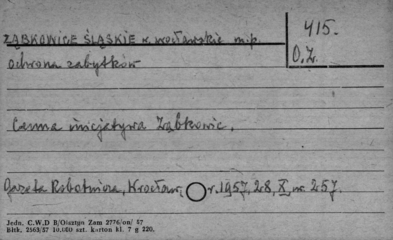 ZĄBKOWICE ŚLĄSKIE w. wrocławskie m.p.
415.
O.Z.
ochrona zabytków
Cenna inicjatywa Ząbkowic.
Gazeta Robotnicza, Wrocław, r. 1957, 28, X, nr 257.
Jedn. C.W.D B/Olsztyn Zam 2776/on/ 57
Błtk. 2563/57 10.000 szt. karton kl. 7 g 220.